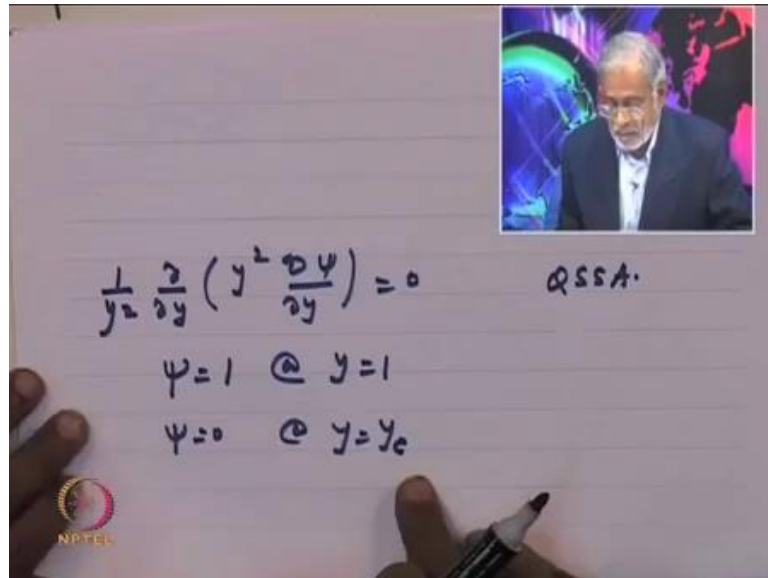 1/y² ∂/∂y ( y² ∂ψ/∂y ) = 0 QSSA.
ψ = 1 @ y = 1
ψ = 0 @ y = yc
NPTEL